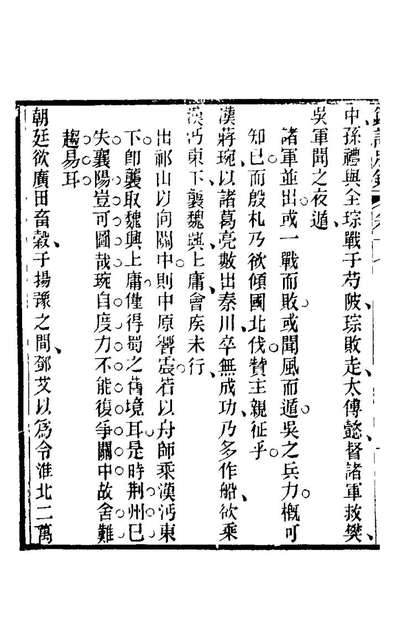 中孫禮與全琮戰于芍陂琮敗走太傅懿督諸軍救樊、
吳軍聞之夜遁、
諸軍並出或一戰而敗或聞風而遁吳之兵力槪可
知已而殷札乃欲傾國北伐贊主親征乎
漢蔣琬以諸葛亮數出秦川卒無成功、乃多作船欲乘
漢沔東下、襲魏興上庸會疾未行、
出祁山以向關中則中原響震若以舟師乘漢沔東
下卽襲取魏興上庸僅得蜀之舊境耳是時荆州已
失襄陽豈可圖哉琬自度力不能復爭關中故舍難
趨易耳
朝廷欲廣田畜穀于揚豫之間、鄧艾以爲令淮北二萬